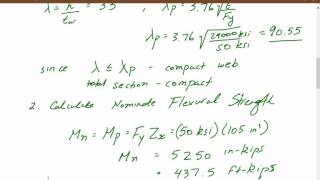 λ = h/tw = 35 , λp = 3.76 √(E/Fy)
λp = 3.76 √(29000 ksi / 50 ksi) = 90.55
since λ ≤ λp - compact web
section - compact
2. Calculate Nominal Flexural Strength
Mn = Mp = Fy Zx = (50 ksi)(105 in³)
Mn = 5250 in-kips
= 437.5 ft-kips